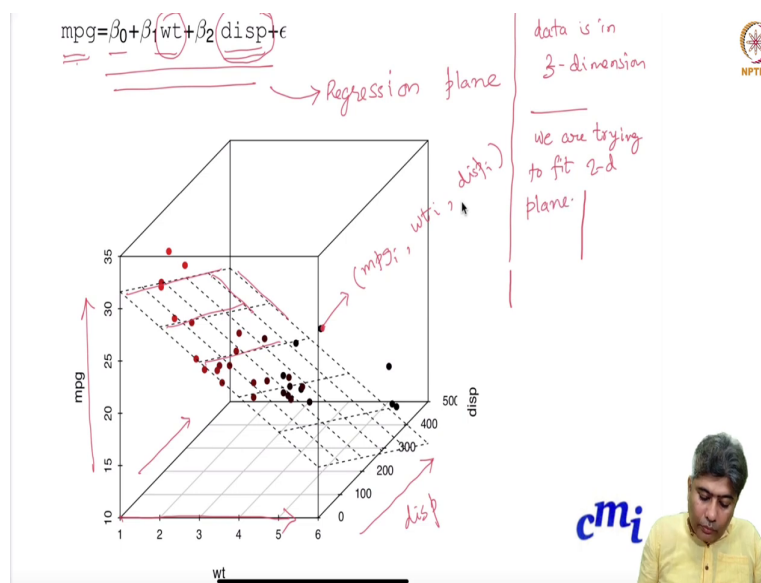 mpg=β0+β1wt+β2 disp+ϵ
Regression plane
data is in
3-dimension
we are trying
to fit 2-d
plane.
NPTE
(mpgi, wti, dispi)
35
30
25
20
15
10
mpg
1 2 3 4 5 6
wt
0
100
200
300
400
500
disp
disp
cmi